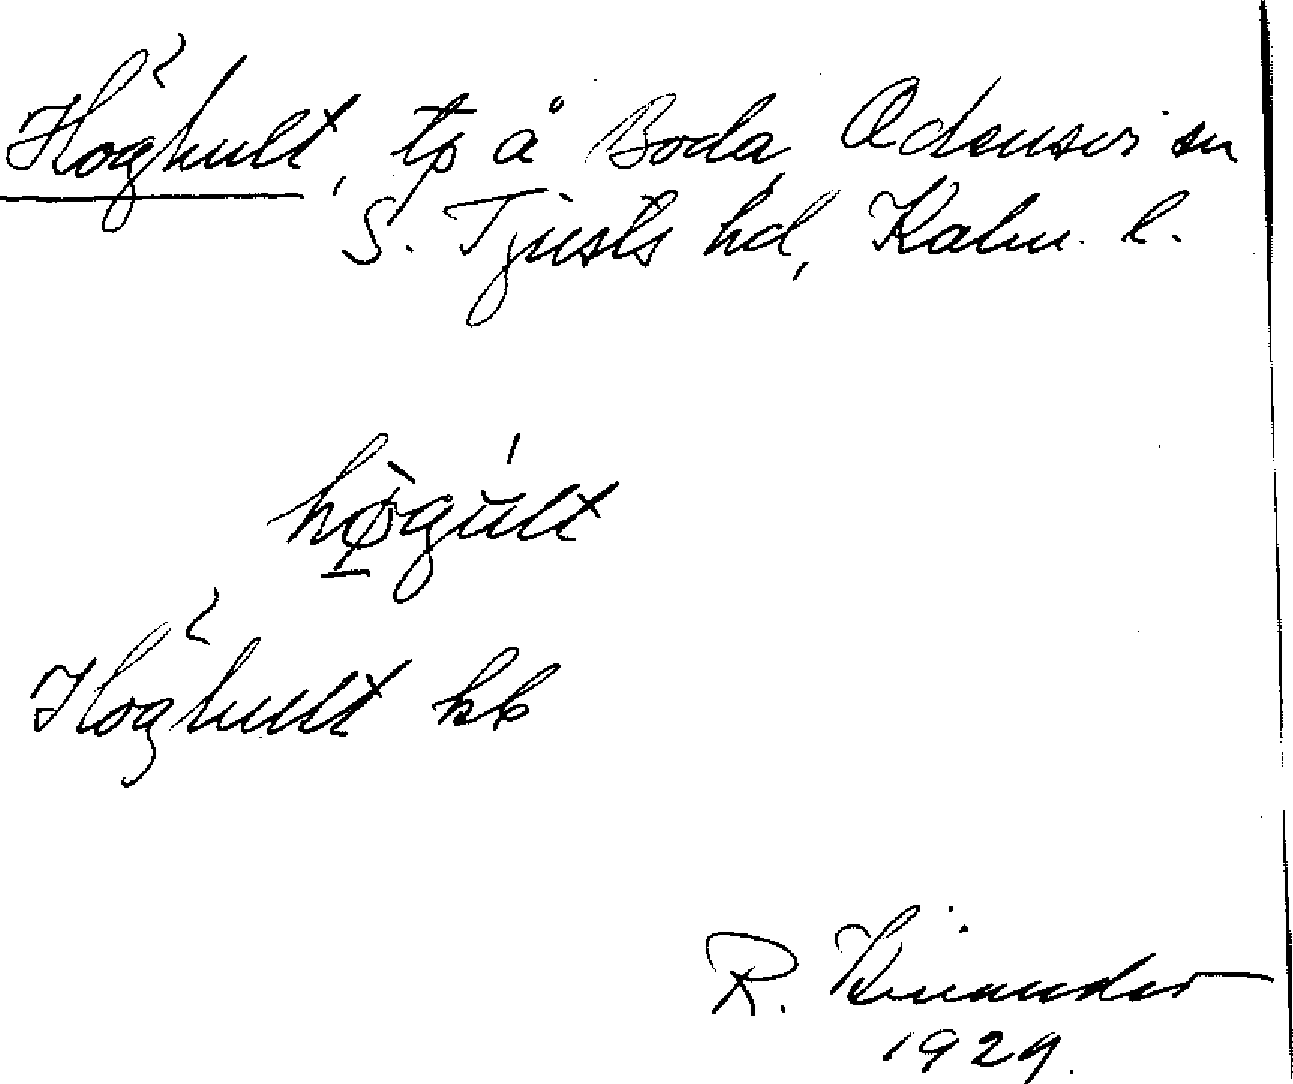 Höghult, tp å Boda Odensvi sn
S. Tjusts hd, Kalm. l.
hø̀gúlt
Höghult kb
R. Kinander
1929.